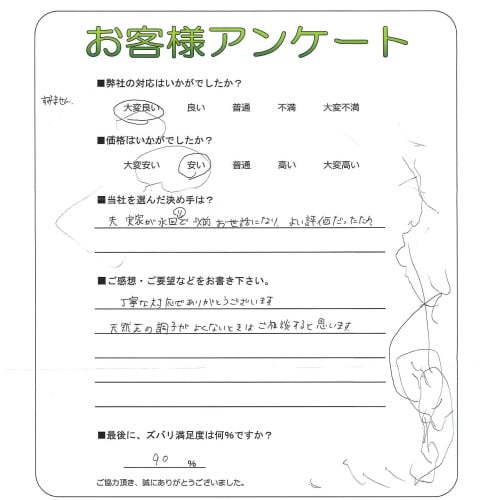 お客様アンケート
■弊社の対応はいかがでしたか？
すみません
大変良い 良い 普通 不満 大変不満
■価格はいかがでしたか？
大変安い 安い 普通 高い 大変高い
■当社を選んだ決め手は？
夫 実家が水回りで以前お世話になり よい評価だったため
■ご感想・ご要望などをお書き下さい。
丁寧な対応でありがとうございます
の調子がよくないときはご相談すると思います
■最後に、ズバリ満足度は何%ですか？
90 %
ご協力頂き、誠にありがとうございました。